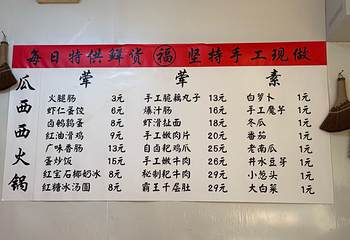 每日特供鲜货 福 坚持手工现做
瓜西西火锅
荤 荤 素
火腿肠 3元 手工脆藕丸子 13元 白萝卜 1元
虾仁蛋饺 6元 爆汁肠 16元 手工魔芋 1元
卤鹌鹑蛋 8元 虾滑肚面 18元 冬瓜 1元
红油滑鸡 9元 手工嫩肉片 20元 番茄 1元
广味香肠 13元 自卤耙鸡爪 25元 老南瓜 1元
蛋炒饭 15元 手工嫩牛肉 26元 井水豆芽 1元
红宝石椰奶冰 8元 秘制耙牛肉 29元 小葱头 1元
红糖冰汤圆 8元 霸王千层肚 29元 大白菜 1元